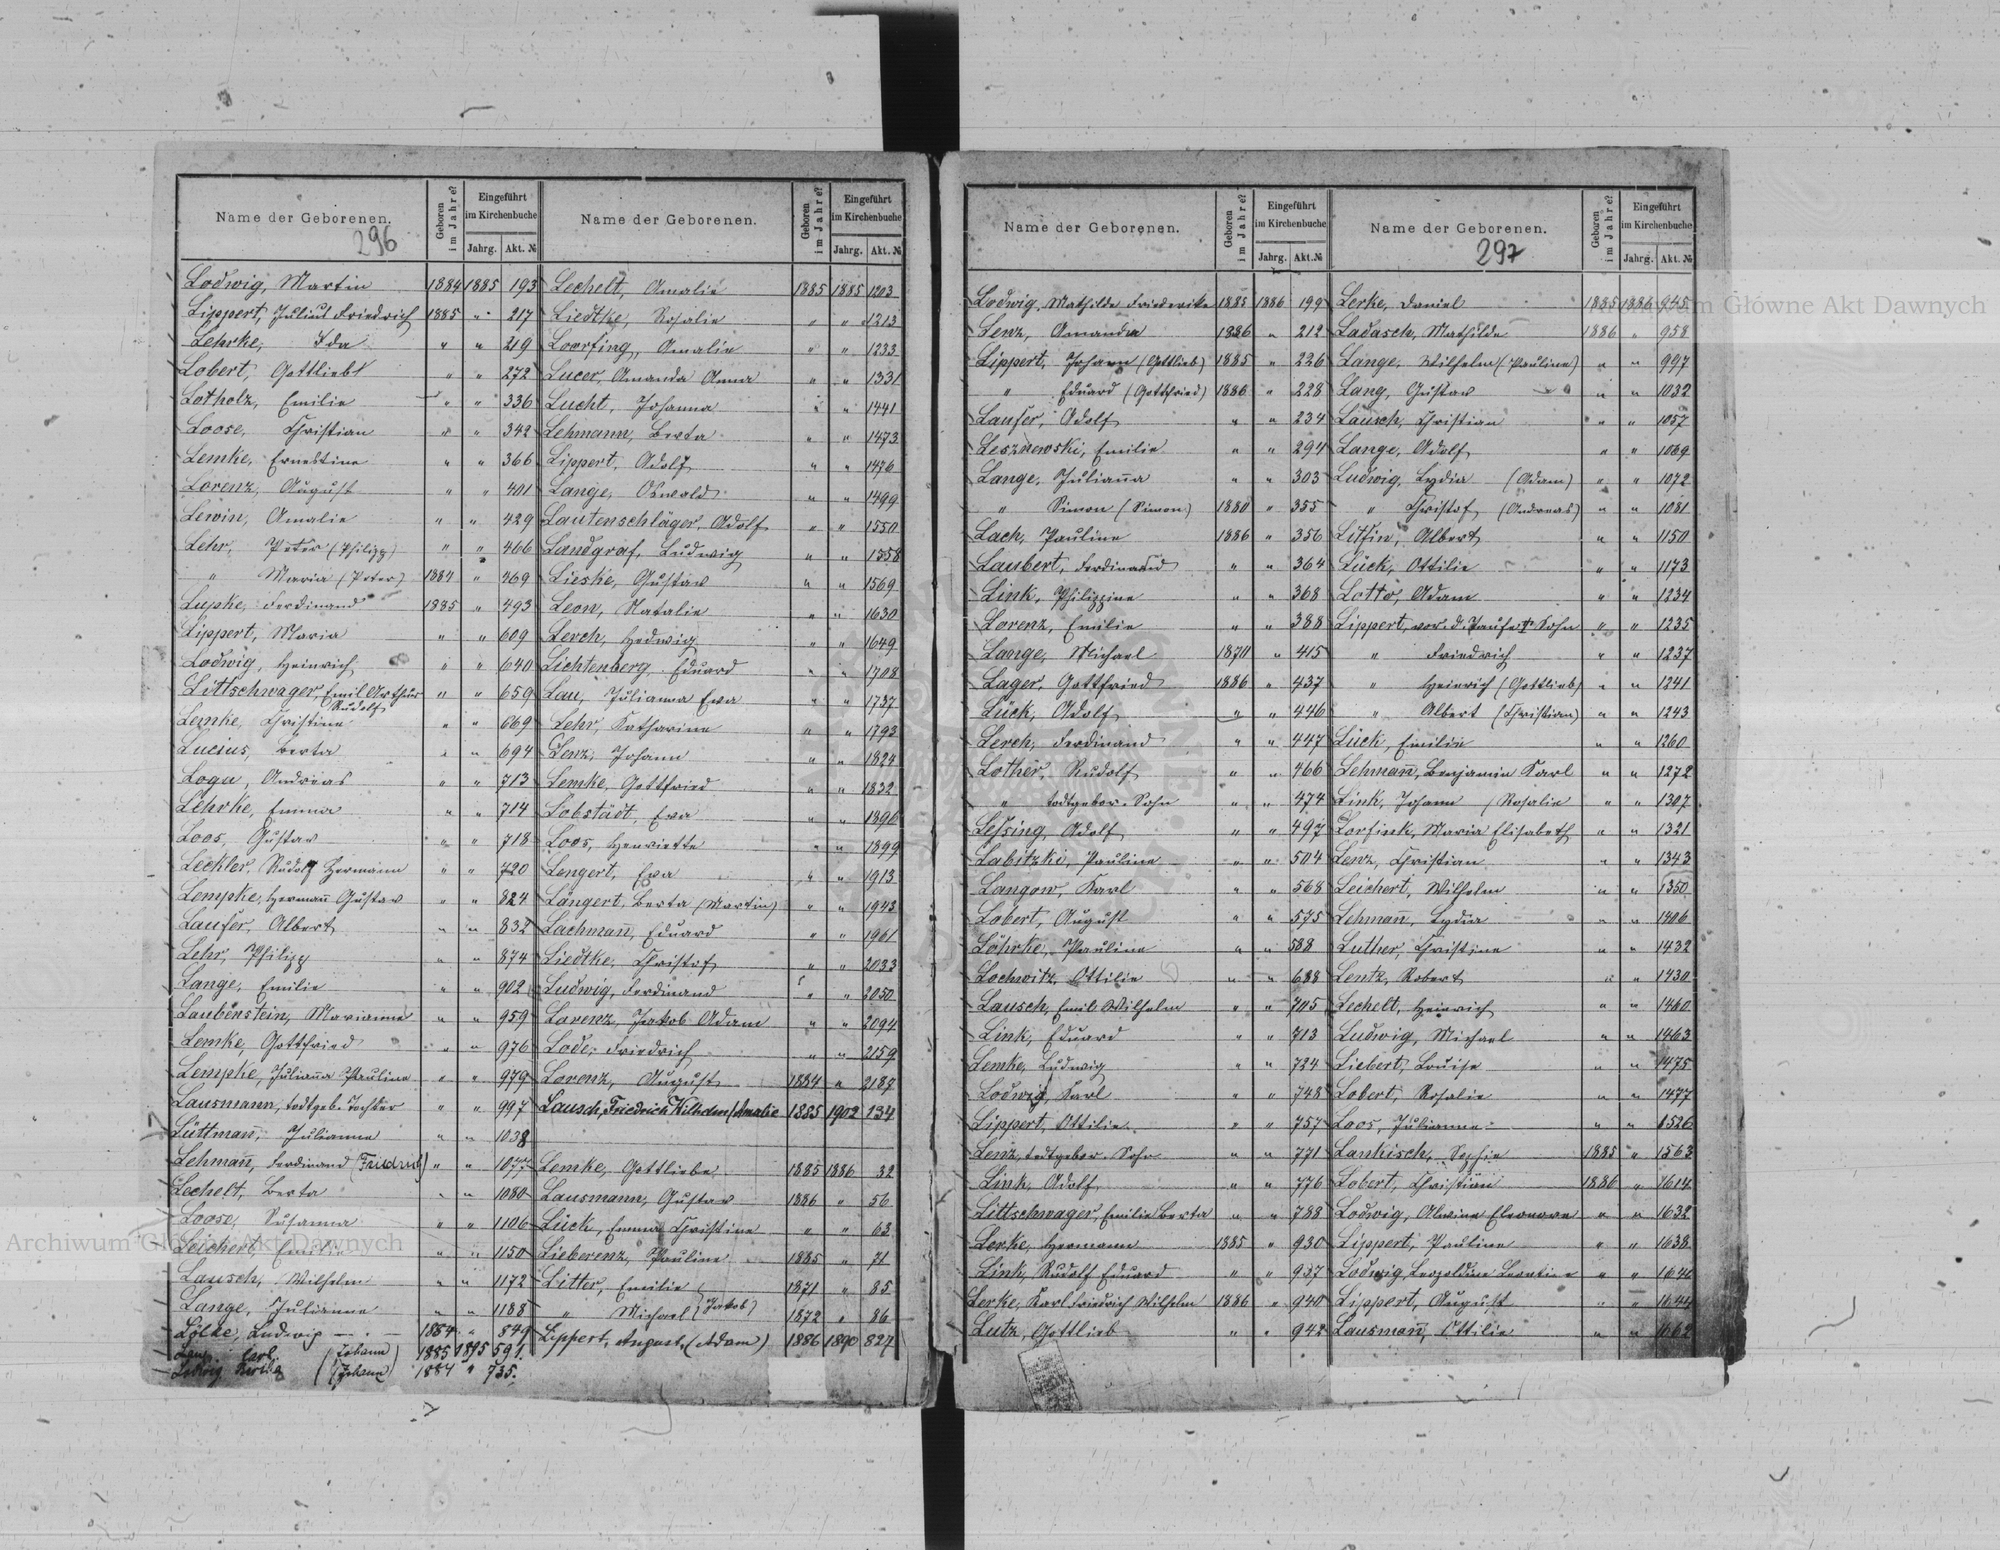 Name der Geborenen.
296
Geboren im Jahre?
Eingeführt im Kirchenbuche
Jahrg. Akt. №
Lodwig, Martin 1884 1885 193
Lippert, Julius Friedrich 1885 " 217
Lehrke, Ida " " 219
Lobert, Gottlieb " " 272
Lotholz, Emilie " " 336
Loose, Christian " " 342
Lemke, Ernestine " " 366
Lorenz, August " " 401
Lewin, Amalie " " 429
Lehr, Peter (Philipp) " " 466
" Maria (Peter) 1884 " 469
Lupke, Ferdinand 1885 " 493
Lippert, Maria " " 609
Lodwig, Heinrich " " 640
Littschwager, Emil Arthur Rudolf " " 659
Lemke, Christine " " 669
Lucius, Berta " " 694
Loga, Andreas " " 713
Lehrke, Emma " " 714
Loos, Gustav " " 718
Leckler, Rudolf Hermann " " 720
Lempke, Hermann Gustav " " 824
Laufer, Albert " " 832
Lehr, Philipp " " 874
Lange, Emilie " " 902
Laubenstein, Marianne " " 959
Lemke, Gottfried " " 976
Lempke, Julianna Pauline " " 979
Lausmann, todtgeb. Tochter " " 997
Lüttmann, Julianne " " 1038
Lehmann, Ferdinand (Fridrich) " " 1077
Lechelt, Berta " " 1080
Loose, Susanna " " 1106
Leichert, Emilie " " 1150
Lausch, Wilhelm " " 1172
Lange, Julianne " " 1188
Lölke, Ludwig 1884 " 849
Carl (Johann) 1885 1895 591
Ludwig (Johann) 1884 " 735.
Name der Geborenen.
Geboren im Jahre?
Eingeführt im Kirchenbuche
Jahrg. Akt. №
Lechelt, Amalie 1885 1885 1203
Liedtke, Rosalie " " 1213
Loerfing, Amalie " " 1233
Lucer, Amanda Anna " " 1331
Lucht, Johanna " " 1441
Lehmann, Berta " " 1473
Lippert, Adolf " " 1476
Lange, Oswald " " 1499
Lautenschläger, Adolf " " 1550
Landgraf, Ludwig " " 1558
Lieske, Gustav " " 1569
Leon, Natalie " " 1630
Lerch, Hedwig " " 1649
Lichtenberg, Eduard " " 1708
Lau, Julianna Eva " " 1737
Lehr, Katharine " " 1793
Lenz, Johann " " 1824
Lemke, Gottfried " " 1832
Lobstädt, Eva " " 1896
Loos, Henriette " " 1899
Lengert, Eva " " 1913
Längert, Berta (Martin) " " 1943
Lachman, Eduard " " 1961
Liedtke, Christof " " 2033
Ludwig, Ferdinand " " 2050
Lorenz, Jakob Adam " " 2094
Lode, Friedrich " " 2159
Lorenz, August 1884 " 2187
Lausch, Friedrich Wilhelm (Amalie 1885 1902 134
Lemke, Gottliebe 1885 1886 32
Lausmann, Gustav 1886 " 56
Lück, Emma Christine " " 63
Lieberenz, Pauline 1885 " 71
Litter, Emilie 1871 " 85
" Michael (Jakob) 1872 " 86
Lippert, August, (Adam) 1886 1890 827
Name der Geborenen.
Geboren im Jahre?
Eingeführt im Kirchenbuche
Jahrg. Akt. №
Lodwig, Mathilde Friederike 1885 1886 199
Lenz, Amanda 1886 " 212
Lippert, Johann (Gottlieb) 1885 " 226
" Eduard (Gottfried) 1886 " 228
Laufer, Adolf " " 234
Lesznewski, Emilie " " 294
Lange, Julianna " " 303
" Simon (Simon) 1880 " 355
Lach, Pauline 1886 " 356
Laubert, Ferdinand " " 364
Link, Philippine " " 368
Lorenz, Emilie " " 388
Lange, Michael 1870 " 415
Lager, Gottfried 1886 " 437
Lück, Adolf " " 446
Lerch, Ferdinand " " 447
Lother, Rudolf " " 466
" todtgebor. Sohn " " 474
Lessing, Adolf " " 497
Labitzki, Pauline " " 504
Langow, Karl " " 568
Lobert, August " " 575
Löhrke, Pauline " " 588
Lochwitz, Ottilie " " 688
Lausch, Emil Wilhelm " " 705
Link, Eduard " " 713
Lemke, Ludwig " " 724
Lodwig, Karl " " 748
Lippert, Ottilie " " 757
Lenz, todtgebor. Sohn " " 771
Link, Adolf " " 776
Littschwager, Emilie Berta " " 788
Lerke, Hermann 1885 " 930
Link, Rudolf Eduard " " 937
Lerke, Karl Friedrich Wilhelm 1886 " 940
Lutz, Gottlieb " " 942
Name der Geborenen.
297
Geboren im Jahre?
Eingeführt im Kirchenbuche
Jahrg. Akt. №
Lerke, Daniel 1885 1886 945
Ladasch, Mathilde 1886 " 958
Lange, Wilhelm (Pauline) " " 997
Lang, Gustav " " 1032
Lausch, Christian " " 1057
Lange, Adolf " " 1069
Ludwig, Lydia (Adam) " " 1072
" Christof (Andreas) " " 1081
Litfin, Albert " " 1150
Lück, Ottilie " " 1173
Lotto, Adam " " 1234
Lippert, vor. d. Taufe † Sohn " " 1235
" Friedrich " " 1237
" Heinrich (Gottlieb) " " 1241
" Albert (Christian) " " 1243
Lück, Emilie " " 1260
Lehmann, Benjamin Karl " " 1272
Link, Johann (Rosalie " " 1307
Lorfink, Maria Elisabeth " " 1321
Lenz, Christian " " 1343
Leichert, Wilhelm " " 1350
Lehman, Lydia " " 1406
Luther, Christine " " 1432
Lentz, Robert " " 1430
Lechelt, Heinrich " " 1460
Ludwig, Michael " " 1463
Liebert, Louise " " 1475
Lobert, Rosalie " " 1477
Loos, Julianne " " 1526
Lankisch, Sophie 1885 " 1563
Lobert, Christian 1886 " 1614
Lodwig, Alwine Eleonore " " 1632
Lippert, Pauline " " 1638
Lodwig, Leopoldine Leontine " " 1640
Lippert, August " " 1644
Lausmann, Ottilie " " 1662
Archiwum Główne Akt Dawnych
Archiwum Główne Akt Dawnych